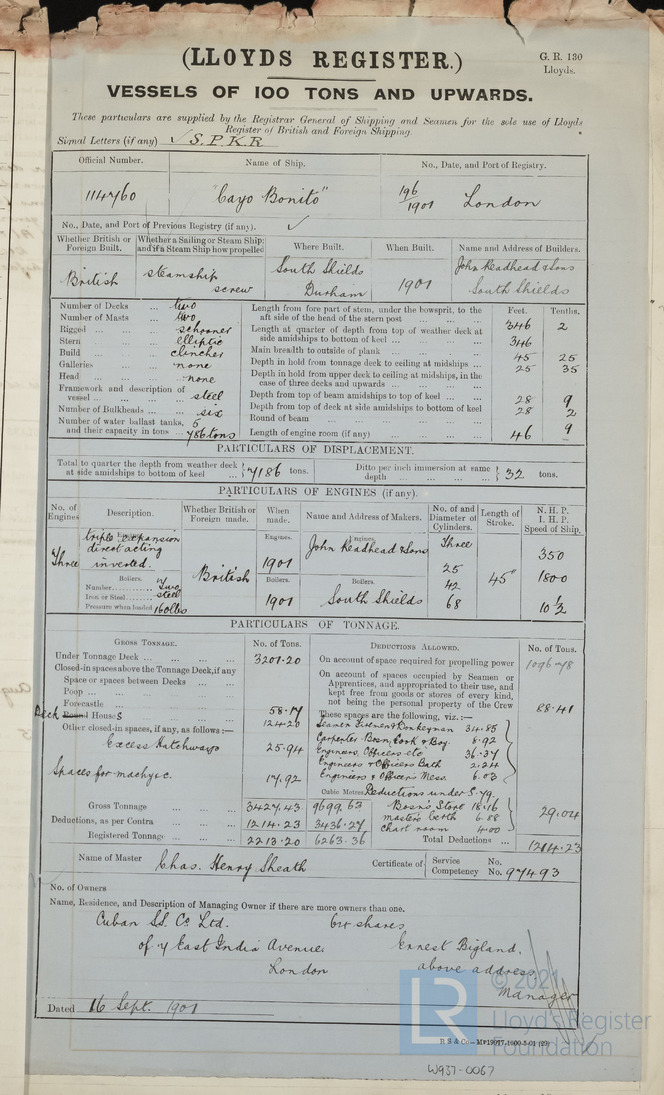 (LLOYDS REGISTER.)
G. R. 130
Lloyds.
VESSELS OF 100 TONS AND UPWARDS.
These particulars are supplied by the Registrar General of Shipping and Seamen for the sole use of Lloyds
Register of British and Foreign Shipping.
Signal Letters (if any) ✓ S. P. K. R.
Official Number. Name of Ship. No., Date, and Port of Registry.
114760 "Cayo Bonito" 196/1901 London
No., Date, and Port of Previous Registry (if any). ✓
Whether British or Foreign Built. Whether a Sailing or Steam Ship; and if a Steam Ship how propelled Where Built. When Built. Name and Address of Builders.
British steamship screw South Shields Durham 1901 John Readhead & Sons South Shields
Number of Decks ... two
Number of Masts ... two
Rigged ... schooner
Stern ... elliptic
Build ... clincher
Galleries ... none
Head ... none
Framework and description of vessel ... steel
Number of Bulkheads ... six
Number of water ballast tanks, 5
and their capacity in tons ... 786 tons
Feet. Tenths.
Length from fore part of stem, under the bowsprit, to the aft side of the head of the stern post ... 346 2
Length at quarter of depth from top of weather deck at side amidships to bottom of keel ... 346
Main breadth to outside of plank ... 45 25
Depth in hold from tonnage deck to ceiling at midships ... 25 35
Depth in hold from upper deck to ceiling at midships, in the case of three decks and upwards ...
Depth from top of beam amidships to top of keel ... 28 9
Depth from top of deck at side amidships to bottom of keel 28 2
Round of beam ... 9
Length of engine room (if any) ... 46 –
PARTICULARS OF DISPLACEMENT.
Total to quarter the depth from weather deck at side amidships to bottom of keel ... 7186 tons. Ditto per inch immersion at same depth ... 32 tons.
PARTICULARS OF ENGINES (if any).
No. of Engines. Description. Whether British or Foreign made. When made. Name and Address of Makers. No. of and Diameter of Cylinders. Length of Stroke. N. H. P. I. H. P. Speed of Ship.
Three triple expansion direct acting inverted. British Engines. 1901 Engines. John Readhead & Sons Three 25 42 68 45" 350 1800 10½
Boilers. Number two
Iron or Steel steel
Pressure when loaded 160 lbs
Boilers. 1901 Boilers. South Shields
PARTICULARS OF TONNAGE.
GROSS TONNAGE. No. of Tons.
Under Tonnage Deck ... 3201.20
Closed-in spaces above the Tonnage Deck, if any
Space or spaces between Decks ...
Poop ...
Forecastle ... 58.17
Deck Round Houses 124.20
Other closed-in spaces, if any, as follows:—
Excess Hatchways 25.94
Spaces for machy &c. 17.92
Cubic Metres.
Gross Tonnage ... 3427.43 9699.63
Deductions, as per Contra ... 1214.23 3436.27
Registered Tonnage ... 2213.20 6263.36
DEDUCTIONS ALLOWED. No. of Tons.
On account of space required for propelling power 1096.78
On account of spaces occupied by Seamen or Apprentices, and appropriated to their use, and kept free from goods or stores of every kind, not being the personal property of the Crew 88.41
These spaces are the following, viz.:—
Seamen Firemen & Donkeyman 34.85
Carpenter Bosn, Cook & Boy. 8.92
Engineers, Officers etc 36.37
Engineers & Officers Bath 2.24
Engineers & Officers Mess. 6.03
Deductions under S. 79.
Bosn's Store 18.16
masters berth 6.88
chart room 4.00
29.04
Total Deductions ... 1214.23
Name of Master Chas. Henry Sheath Certificate of Service No. Competency No. 97493
No. of Owners
Name, Residence, and Description of Managing Owner if there are more owners than one.
Cuban SS. Co Ltd. 64 shares
of 4 East India Avenue, Ernest Bigland,
London above address
Manager
Dated 16 Sept. 1901
R S & Co—
W937-0067
© 2021
LR Lloyd's Register
Foundation